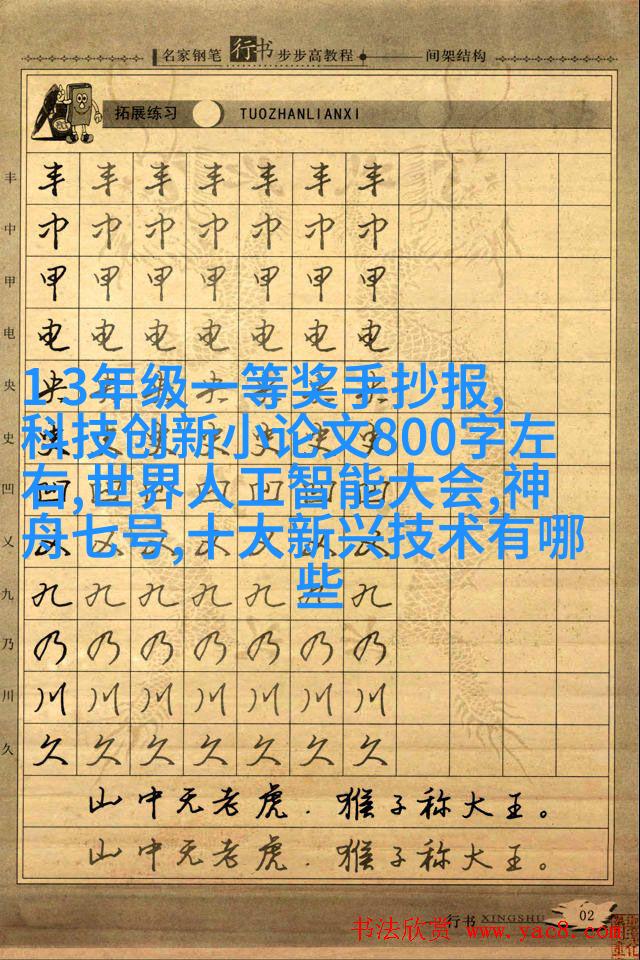 名家钢笔 行书 步步高教程 间架结构
拓展练习 TUOZHANLIANXI
丰 丰 丰 丰 丰 丰 丰 丰
中 中 中 中 中 中 中 中
甲 甲 甲 甲 甲 甲 甲 甲
电 电 电 电 电 电 电 电
央 央 央 央
1-3年级一等奖手抄报,
史 史
科技创新小论文800字左
凹 凹 凹 凹 凹 凹 凹 凹
右,世界人工智能大会,神
乂
舟七号,十大新兴技术有哪
些
九 九 九 九 九 九 九 九
乃 乃 乃 乃 乃 乃 乃 乃
川 川 川 川 川 川 川 川
久 久 久 久 久 久 久 久
山中无老虎．猴子称大王。
山中无老虎．猴子称大王。
行书 XINGSHU 02
书法欣赏 www.yac8.com